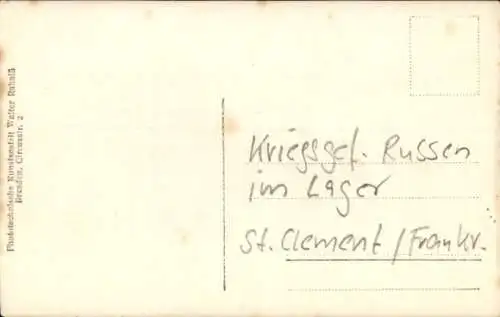 Phototechnische Kunstanstalt Walter Hahnlß
Dresden, Circusstr. 2
Kriegsgef. Russen
im Lager
St. Clement / Frankr.